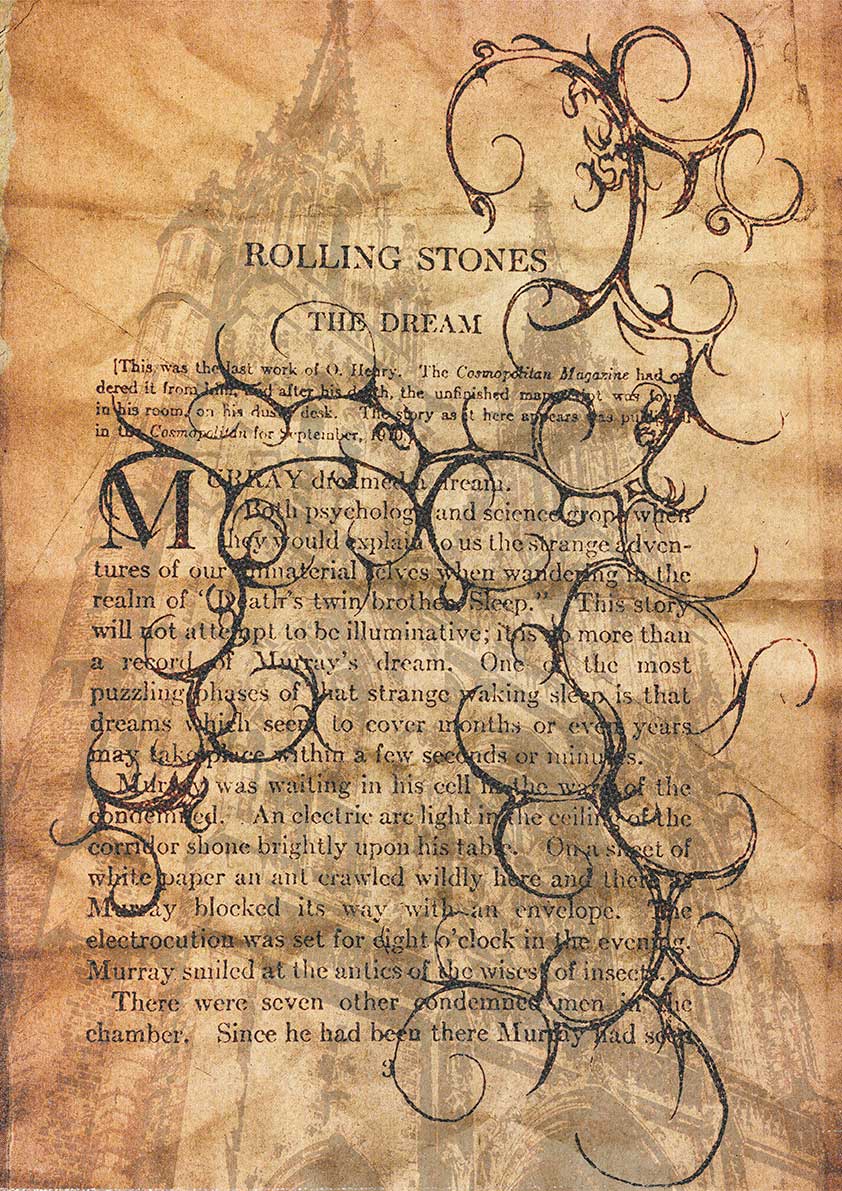 ROLLING STONES
THE DREAM
[This was the last work of O. Henry. The Cosmopolitan Magazine had or-
dered it from him, and after his death, the unfinished manuscript was found
in his room, on his dusty desk. The story as it here appears was published
in the Cosmopolitan for September, 1910.]
MURRAY dreamed a dream.
Both psychology and science grope when
they would explain to us the strange adven-
tures of our immaterial selves when wandering in the
realm of "Death's twin brother, Sleep." This story
will not attempt to be illuminative; it is no more than
a record of Murray's dream. One of the most
puzzling phases of that strange waking sleep is that
dreams which seem to cover months or even years
may take place within a few seconds or minutes.
Murray was waiting in his cell in the ward of the
condemned. An electric arc light in the ceiling of the
corridor shone brightly upon his table. On a sheet of
white paper an ant crawled wildly here and there as
Murray blocked its way with an envelope. The
electrocution was set for eight o'clock in the evening.
Murray smiled at the antics of the wisest of insects.
There were seven other condemned men in the
chamber. Since he had been there Murray had seen
3